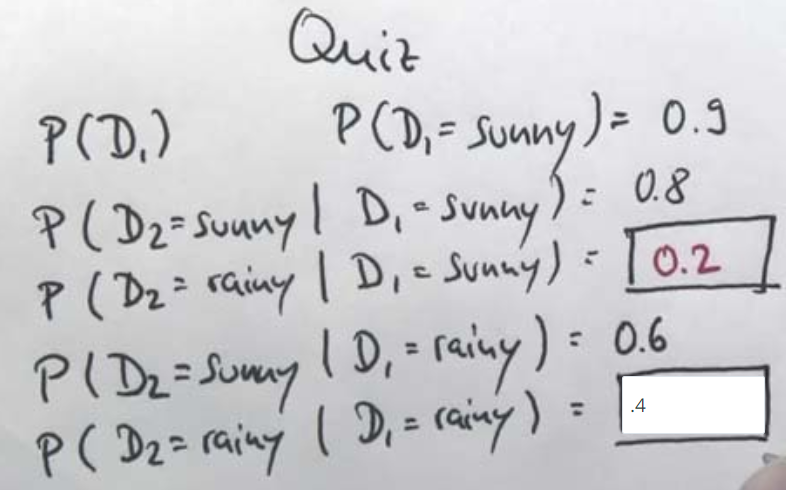 Quiz
P(D₁) P(D₁ = sunny) = 0.9
P(D₂ = sunny | D₁ = sunny) = 0.8
P(D₂ = rainy | D₁ = sunny) = 0.2
P(D₂ = sunny | D₁ = rainy) = 0.6
P(D₂ = rainy | D₁ = rainy) = .4